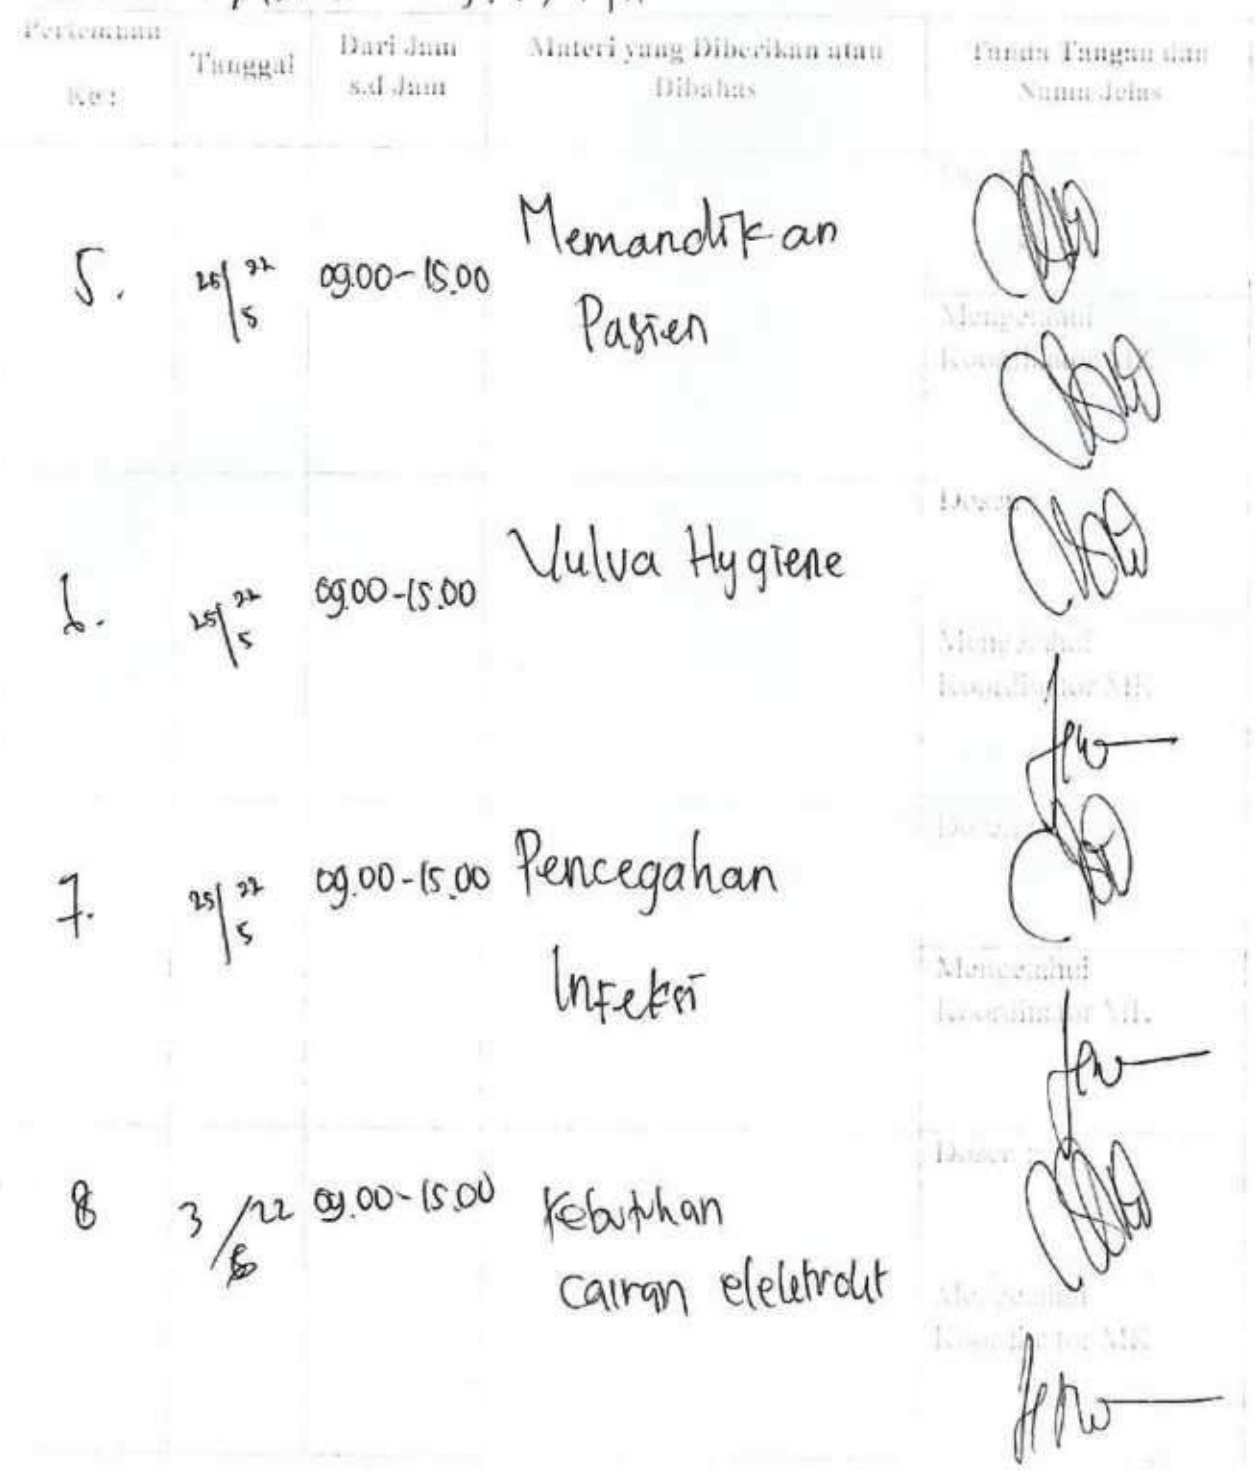 Pertemuan
Ke :
Tanggal
Dari Jam
s.d Jam
Materi yang Diberikan atau
Dibahas
Tanda Tangan dan
Nama Jelas
5.
25/5 22
09.00-15.00
Memandikan
Pasien
Mengetahui
Koordinator MK
6.
25/5 22
09.00-15.00
Vulva Hygiene
Dosen
Mengetahui
Koordinator MK
7.
25/5 22
09.00-15.00
Pencegahan
Infeksi
Dosen
Mengetahui
Koordinator MK
8
3/6 22
09.00-15.00
Kebutuhan
cairan elektrolit
Dosen :
Mengetahui
Koordinator MK